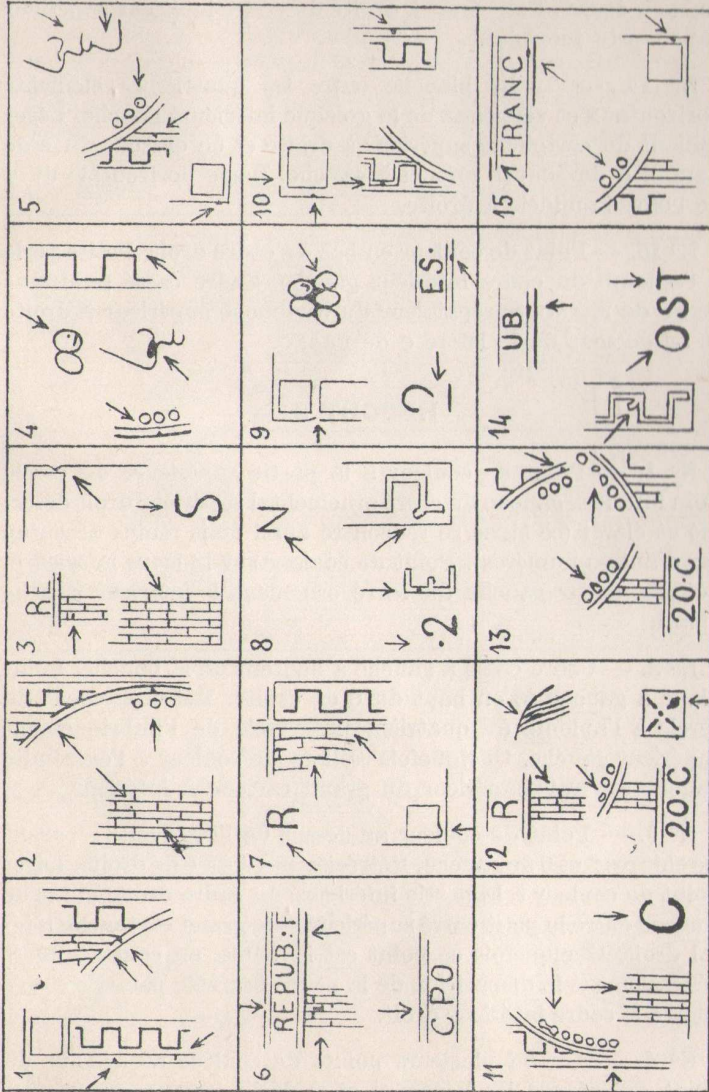 1
2
3 RE
S
4
5
6
REPUB:F
CPO
7
R
8
N
·2
9
2 ES:
10
11
C
12
R
20·C
13
20·C
14
UB
OST
15
FRANC